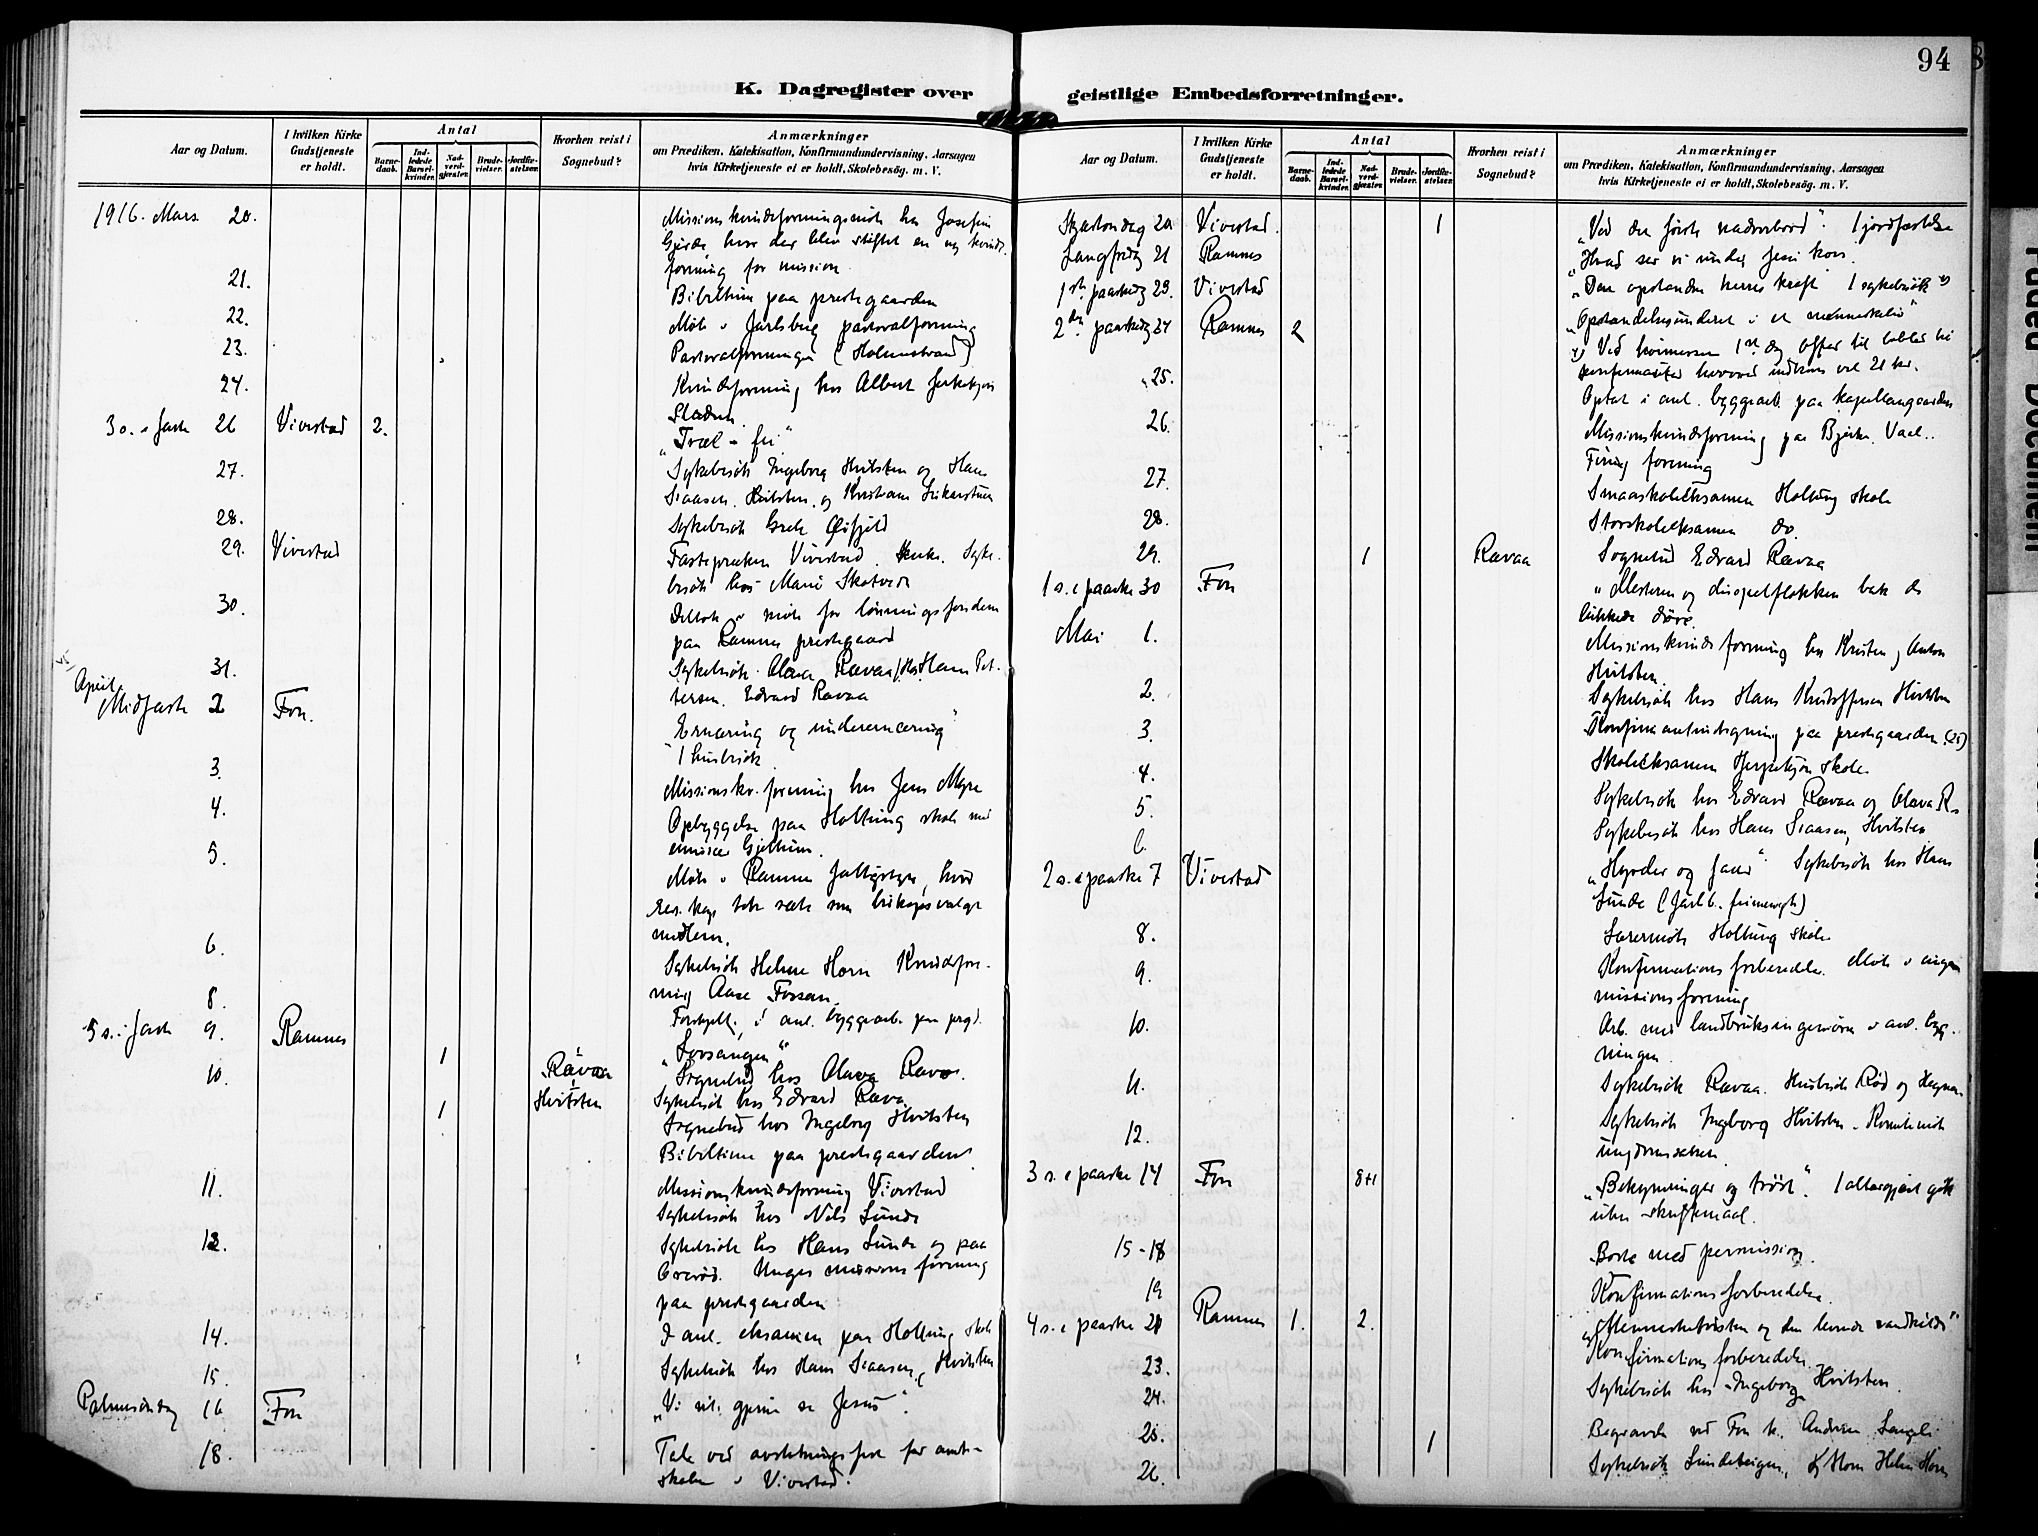 94
K. Dagregister over geistlige Embedsforretninger.
Aar og Datum.
I hvilken Kirke Gudstjeneste er holdt.
Antal
Barnedaab.
Indledede Barselkvinder.
Nadverdgjæster.
Brudevielser.
Jordfæstelser.
Hvorhen reist i Sognebud?
Anmærkninger
om Prædiken, Katekisation, Konfirmandundervisning, Aarsagen
hvis Kirketjeneste ei er holdt, Skolebesøg. m. V.
1916. Mars 20. Missionskvindeforeningsmöte hos Josefine
Gjerde hvor der blev stiftet en ny kvinde
forening for mission
21. Bibeltime paa prestegaarden
22. Möte i Jarlsberg pastoralforening
23. Pastoralforeningen (Holmestrand)
24. Kvindeforening hos Albert
3 s. i faste 26 Vivestad 2. "Træl - fri"
27. Sykebesök Ingeborg Hvitsten og Hans
Isaasen Hvitsten og Kristiane
28. Sykebesök
29. Vivestad Fastepræken Vivestad. Syke-
besök hos Marie Skotvedt
30. Deltok i möte for lönningsfondene
paa Ramnes prestegaard
31. Sykebesök Olava Rævaa, Hans Pet-
tersen. Edvard Rævaa
April
Midfaste 2 Fon. "Ernæring og underernæring"
1 husbesök
3. Missionskv.forening hos Jens Myre
4. Opbyggelse paa Holtung skole med
5. Möte i Ramnes fattigstyre, hvor
res. kap. tok sæte som biskopsvalgt
medlem.
6. Sykebesök Helene Horn Kvindefore-
ning Aase Fossan
8. i anl. byggearb. paa prgd.
5 s. i faste 9. Ramnes "Lovsangen"
10. 1 Rævaa Sognebud hos Olava Rævaa.
Sykebesök hos Edvard Rævaa
1 Hvitsten Sognebud hos Ingeborg Hvitsten
Bibeltime paa prestegaarden
11. Missionskvindeforening Vivestad
Sykebesök hos Nils Lunde
12. Sykebesök hos Hans Lunde og paa
Unges missionsforening
paa prestegaarden
14. I anl. eksamen paa Holtung skole
15. Sykebesök hos Hans Isaasen, Hvitsten
Palmesöndag 16 Fon "Vi vil gjerne se Jesus".
18. Tale ved avslutningsfest for amts-
skolen i Vivestad.
Aar og Datum.
I hvilken Kirke Gudstjeneste er holdt.
Antal
Barnedaab.
Indledede Barselkvinder.
Nadverdgjæster.
Brudevielser.
Jordfæstelser.
Hvorhen reist i Sognebud?
Anmærkninger
om Prædiken, Katekisation, Konfirmandundervisning, Aarsagen
hvis Kirketjeneste ei er holdt, Skolebesøg. m. V.
Skjærtorsdag 20 Vivestad. 1 "Ved det förste nadverbord". 1 jordfæstelse
Langfredag 21 Ramnes "Hvad ser vi under Jesu kors.
1ste paaskedag 23. Vivestad "Den opstandne herres kraft 1 sykebesök x)
2den paaskedag 24 Ramnes 2 "Opstandelsesunderet i et menneskeliv"
x) Ved höimessen 1ste dag offer til bibler til
konfirmanter hvorved indkom vel 21 kr.
25. Optat i anl. byggearb. paa kapellangaarden
26. Missionskvindeforening paa Bjerke. Vaal..
forening
27. Smaaskoleeksamen Holtung skole
28. Storskoleeksamen do.
29. 1 Rævaa Sognebud Edvard Rævaa
1 s. e paaske 30 Fon "Mesteren og discipelflokken bak de
lukkede döre.
Mai 1. Missionskvindeforening hos Kristen, Anton
Hvitsten.
2. Sykebesök hos Hans Kristoffersen Hvitsten
3. Konfirmantindtegning paa prestegaarden. (25)
4. Skoleeksamen skole
5. Sykebesök hos Edvard Rævaa og Olava R.
6. Sykebesök hos Hans Isaasen, Hvitsten
2 s. e paaske 7 Vivestad "Hyrder og faar" Sykebesök hos Hans
Lunde
8. Holtung skole
9. Konfirmationsforberedelse. Möte i unges
missionsforening
10. Arb. med landbruksingeniören i anl. byg-
ningen
11. Sykebesök Rævaa. Husbesök Röd og
12. Sykebesök Ingeborg Hvitsten.
3 s. e paaske 14 Fon 8+1 "Bekymringer og tröst". 1 altergjæst gik
uten skriftemaal.
15-18 Borte med permission.
19 Konfirmationsforberedelse.
4 s. e paaske 21 Ramnes 1. 2. "Mennesketörsten og den levende vandkilde"
Konfirmationsforberedelse.
23. Sykebesök hos Ingeborg Hvitsten.
24.
25. 1 Begravde ved Fon k.
26. Sykebesök Helene Horn